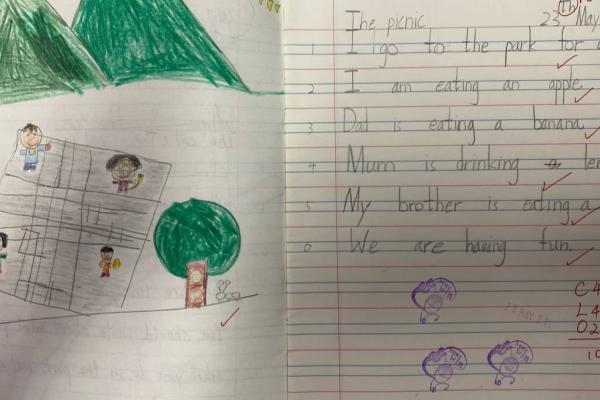 The picnic 23 th May
1 I go to the park for
2 I am eating an apple.
3 Dad is eating a banana.
4 Mum is drinking a
5 My brother is eating a
6 We are having fun.
28 MAY
C4
L4
O2
10